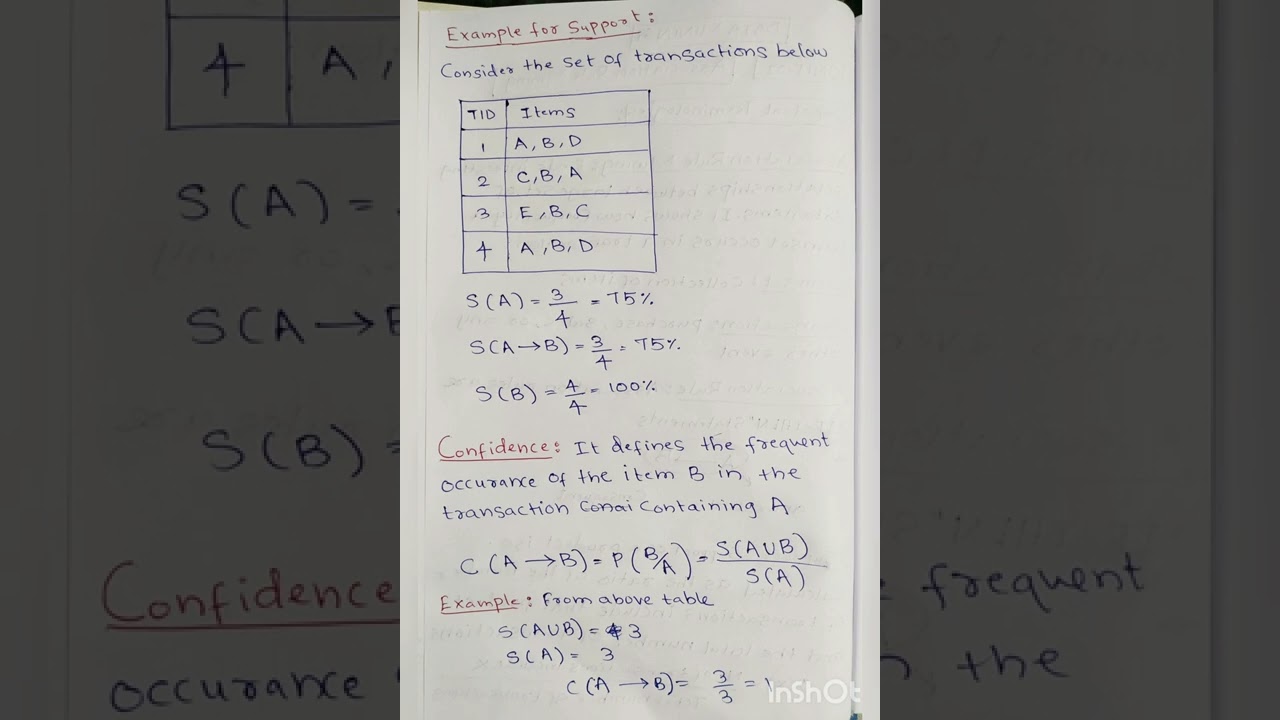 Example for Support:
Consider the set of transactions below
TID Items
1 A, B, D
2 C, B, A
3 E, B, C
4 A, B, D
S(A) = 3/4 = 75%
S(A→B) = 3/4 = 75%
S(B) = 4/4 = 100%
Confidence: It defines the frequent
occurance of the item B in the
transaction Conai Containing A
C(A→B) = P(B/A) = S(AUB)/S(A)
Example: From above table
S(AUB) = 3
S(A) = 3
C(A→B) = 3/3 =
InShOt
4 A,
S(A) =
S(A→B
S(B) =
Confidence
frequent
occurance
the